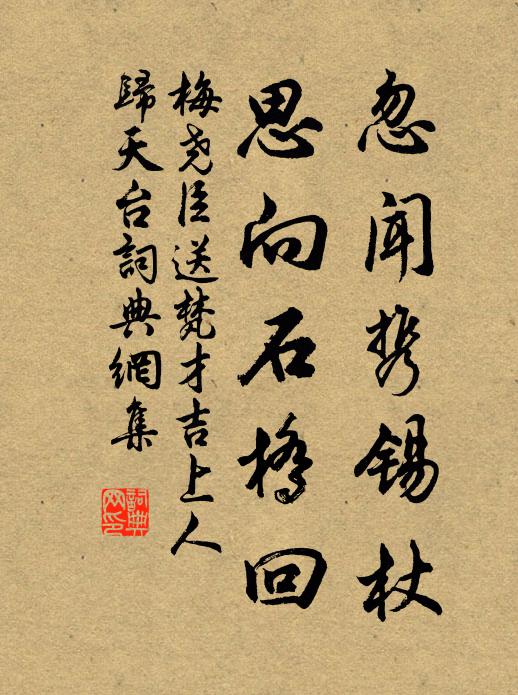 忽闻携锡杖
思向石桥回
梅尧臣送梵才吉上人
歸天台詞典網集
詞典
网印